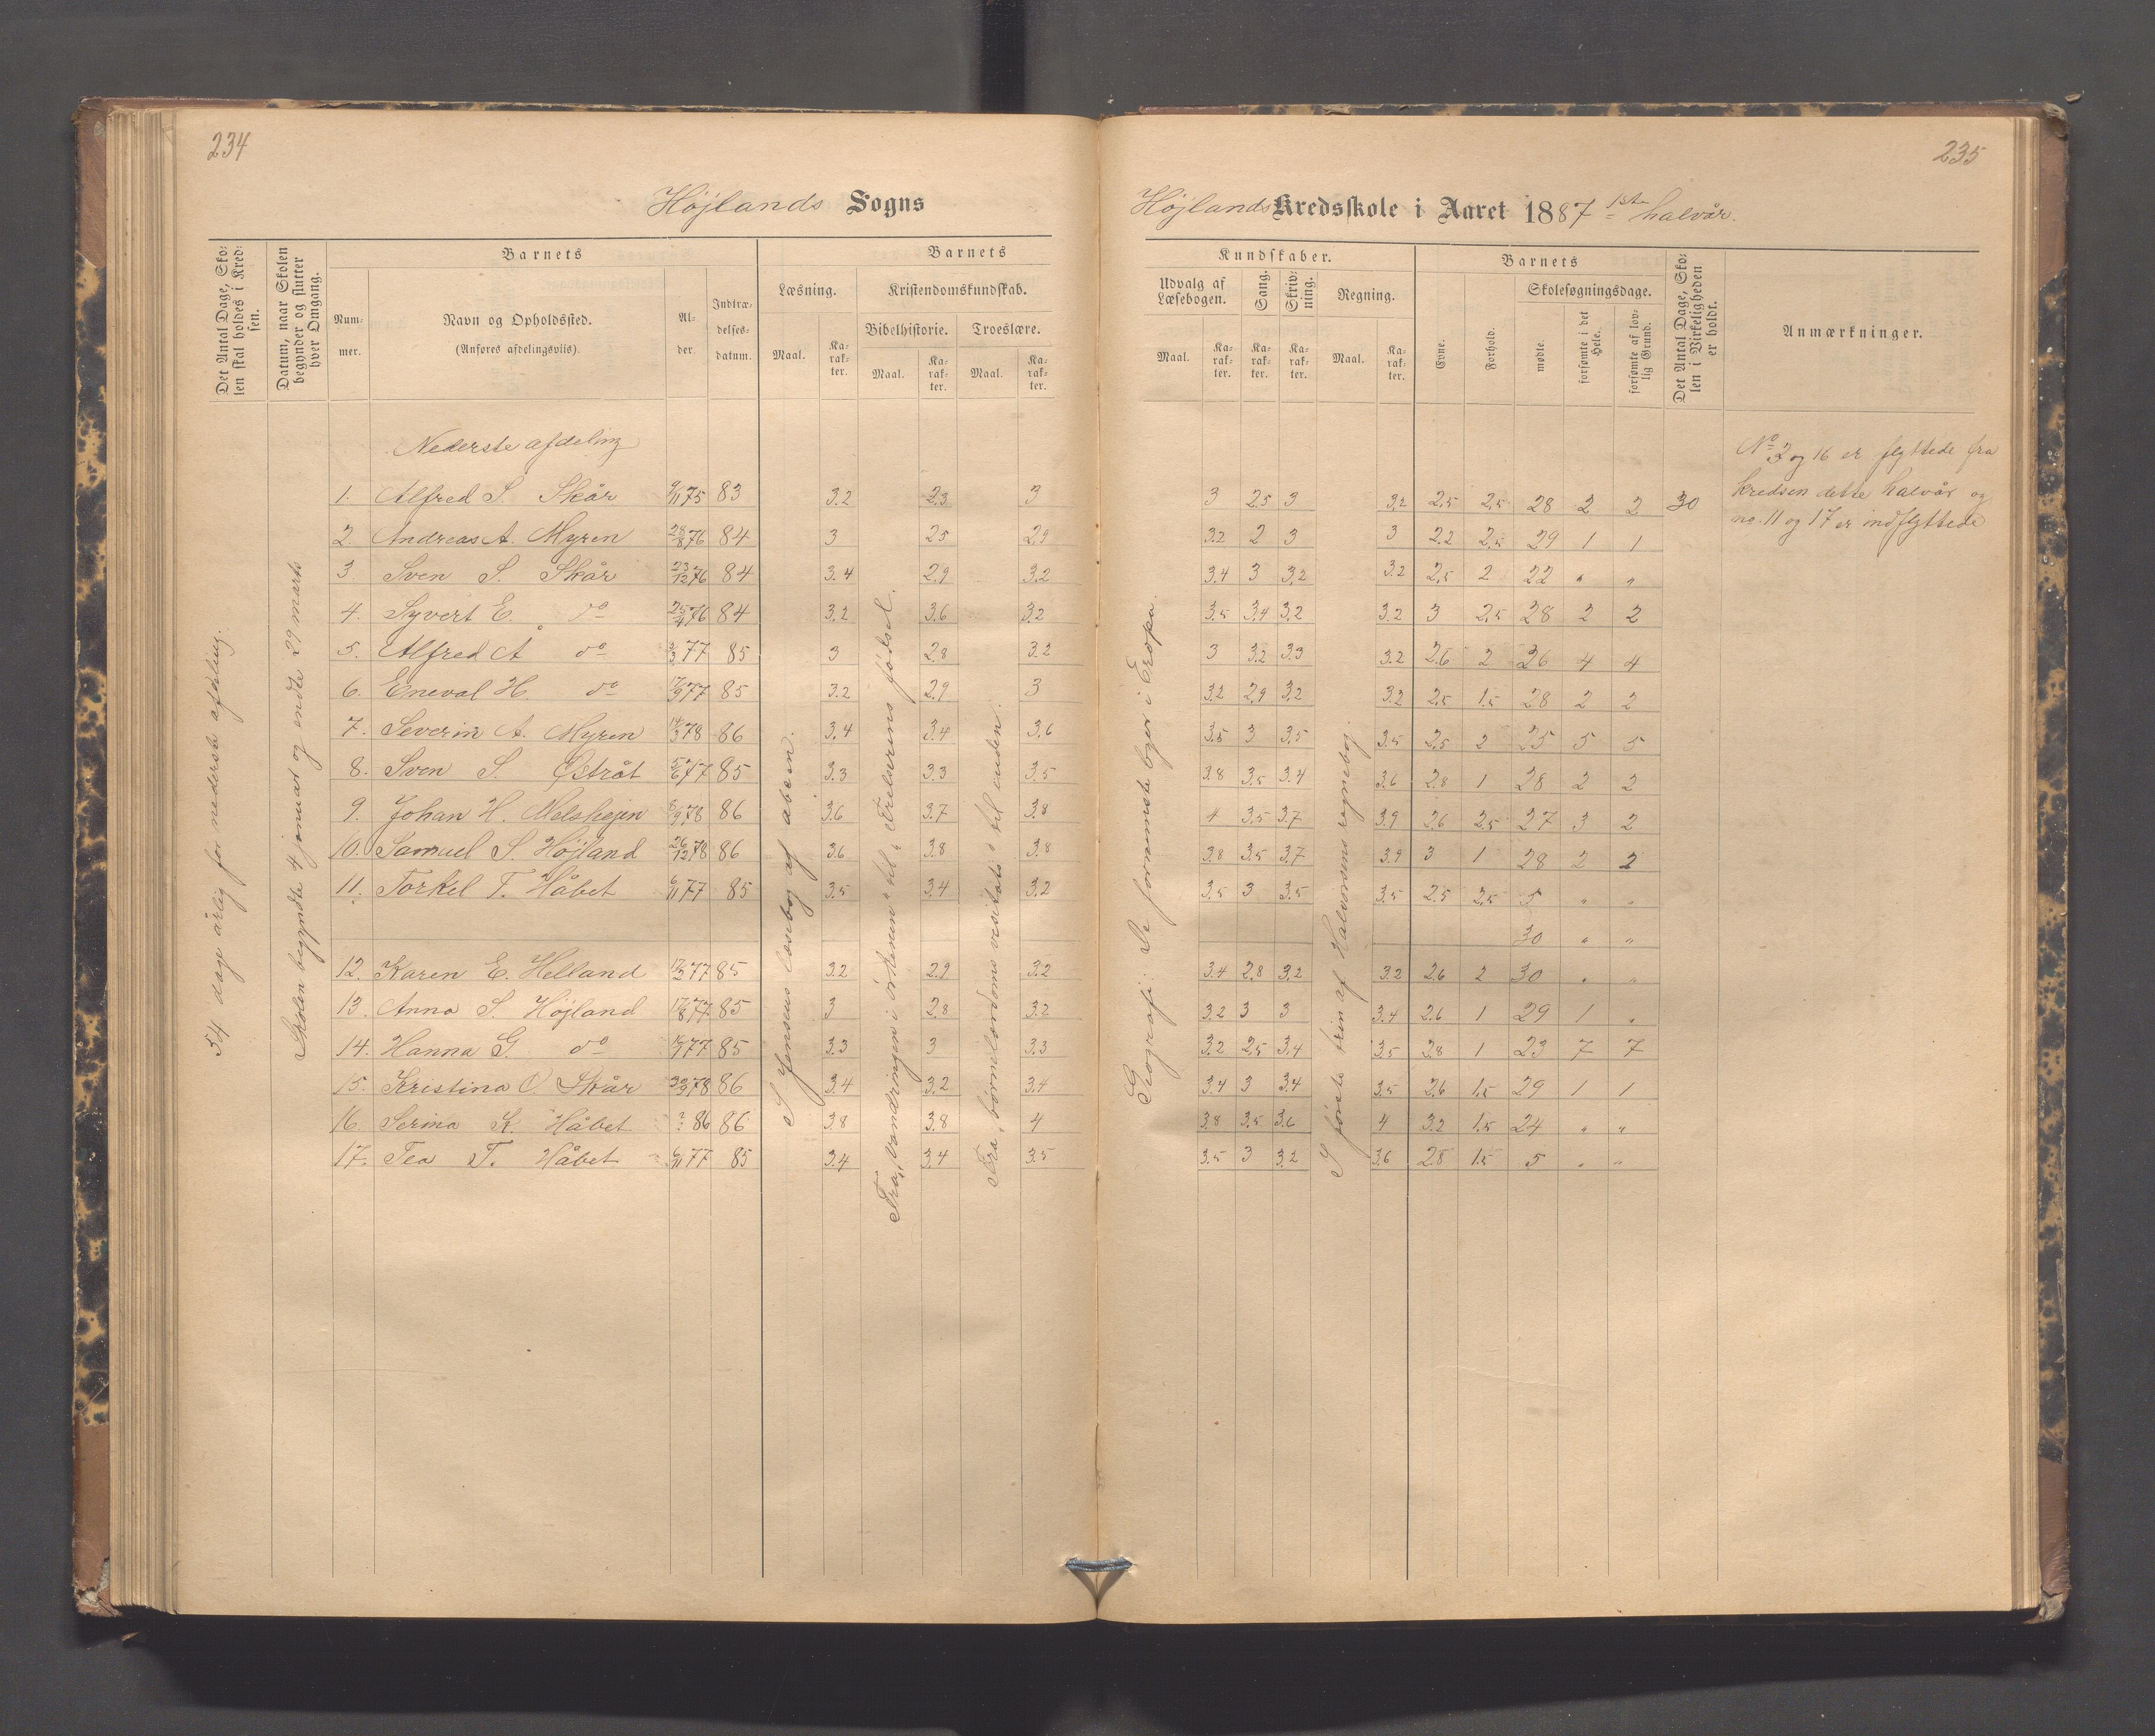 234
Højlands Sogns
Det Antal Dage, Sko-
len skal holdes i Kred-
sen.
Datum, naar Skolen
begynder og slutter
hver Omgang.
Barnets
Num-
mer.
Navn og Opholdssted.
(Anføres afdelingsviis).
Al-
der.
Indtræ-
delses-
datum.
Barnets
Læsning.
Kristendomskundskab.
Bibelhistorie.
Troeslære.
Maal.
Ka-
rak-
ter.
Maal.
Ka-
rak-
ter.
Maal.
Ka-
rak-
ter.
54 dage årlig for nederste afdeling.
Skolen begyndte 4 januar og endte 29 marts
Nederste afdeling
1. Alfred S. Skår 9/11 75 83 3.2 2.3 3
2. Andreas A. Myren 28/8 76 84 3 2.5 2.9
3 Sven S. Skår 23/12 76 84 3.4 2.9 3.2
4. Syvert E. do 76 84 3.2 3.6 3.2
5. Alfred A do 77 85 3 2.8 3.2
6. Eneval H. do 17/9 77 85 3.2 2.9 3
7. Severin A. Myren 14/3 78 86 3.4 3.4 3.6
8. Sven S. Østråt 77 85 3.3 3.3 3.5
9. Johan H. Melshejen 78 86 3.6 3.7 3.8
10. Samuel S. Højland 26/12 78 86 3.6 3.8 3.8
11. Torkel T. Håbet 6/11 77 85 3.5 3.4 3.2
12. Karen E. Helland 77 85 3.2 2.9 3.2
13. Anna S. Højland 77 85 3 2.8 3.2
14. Hanna G. do 77 85 3.3 3 3.3
15. Kristina O. Skår 78 86 3.4 3.2 3.4
16. Serina K. Håbet ? 86 86 3.8 3.8 4
17. Tea T. Håbet 6/11 77 85 3.4 3.4 3.5
S Jensens læsebog af abeen.
Fra „vandringen i örkenen" til „Frelserens fødsel.
Fra „börnelærdoms visitats" til enden.
235
Højlands Kredsskole i Aaret 1887 1ste halvår.
Kundskaber.
Udvalg af
Læsebogen.
Sang.
Skriv-
ning.
Regning.
Maal.
Ka-
rak-
ter.
Ka-
rak-
ter.
Ka-
rak-
ter.
Maal.
Ka-
rak-
ter.
Barnets
Evne.
Forhold.
Skolesøgningsdage.
mødte.
forsømte i det
Hele.
forsømte af lov-
lig Grund.
Det Antal Dage, Sko-
len i Virkeligheden
er holdt.
Anmærkninger.
Geografi: De fornemste byer i Eropa.
I første trin af Halvorsens regnebog.
3 2.5 3 3.2 2.5 2.5 28 2 2 30
3.2 2 3 3 2.2 2.5 29 1 1
3.4 3 3.2 3.2 2.5 2 22 " "
3.5 3.4 3.2 3.2 3 2.5 28 2 2
3 3.2 3.3 3.2 2.6 2 26 4 4
3.2 2.9 3.2 3.2 2.5 1.5 28 2 2
3.5 3 3.5 3.5 2.5 2 25 5 5
3.8 3.5 3.4 3.6 2.8 1 28 2 2
4 3.5 3.7 3.9 2.6 2.5 27 3 2
3.8 3.5 3.7 3.9 3 1 28 2 2
3.5 3 3.5 3.5 2.5 2.5 5 " "
30 " "
3.4 2.8 3.2 3.2 2.6 2 30 " "
3.2 3 3 3.4 2.6 1 29 1 "
3.2 2.5 3.4 3.5 2.8 1 23 7 7
3.4 3 3.4 3.5 2.6 1.5 29 1 1
3.8 3.5 3.6 4 3.2 1.5 24 " "
3.5 3 3.2 3.6 2.8 1.5 5 " "
No 3 og 16 er flyttede fra
kredsen dette halvår og
no. 11 og 17 er indflyttede